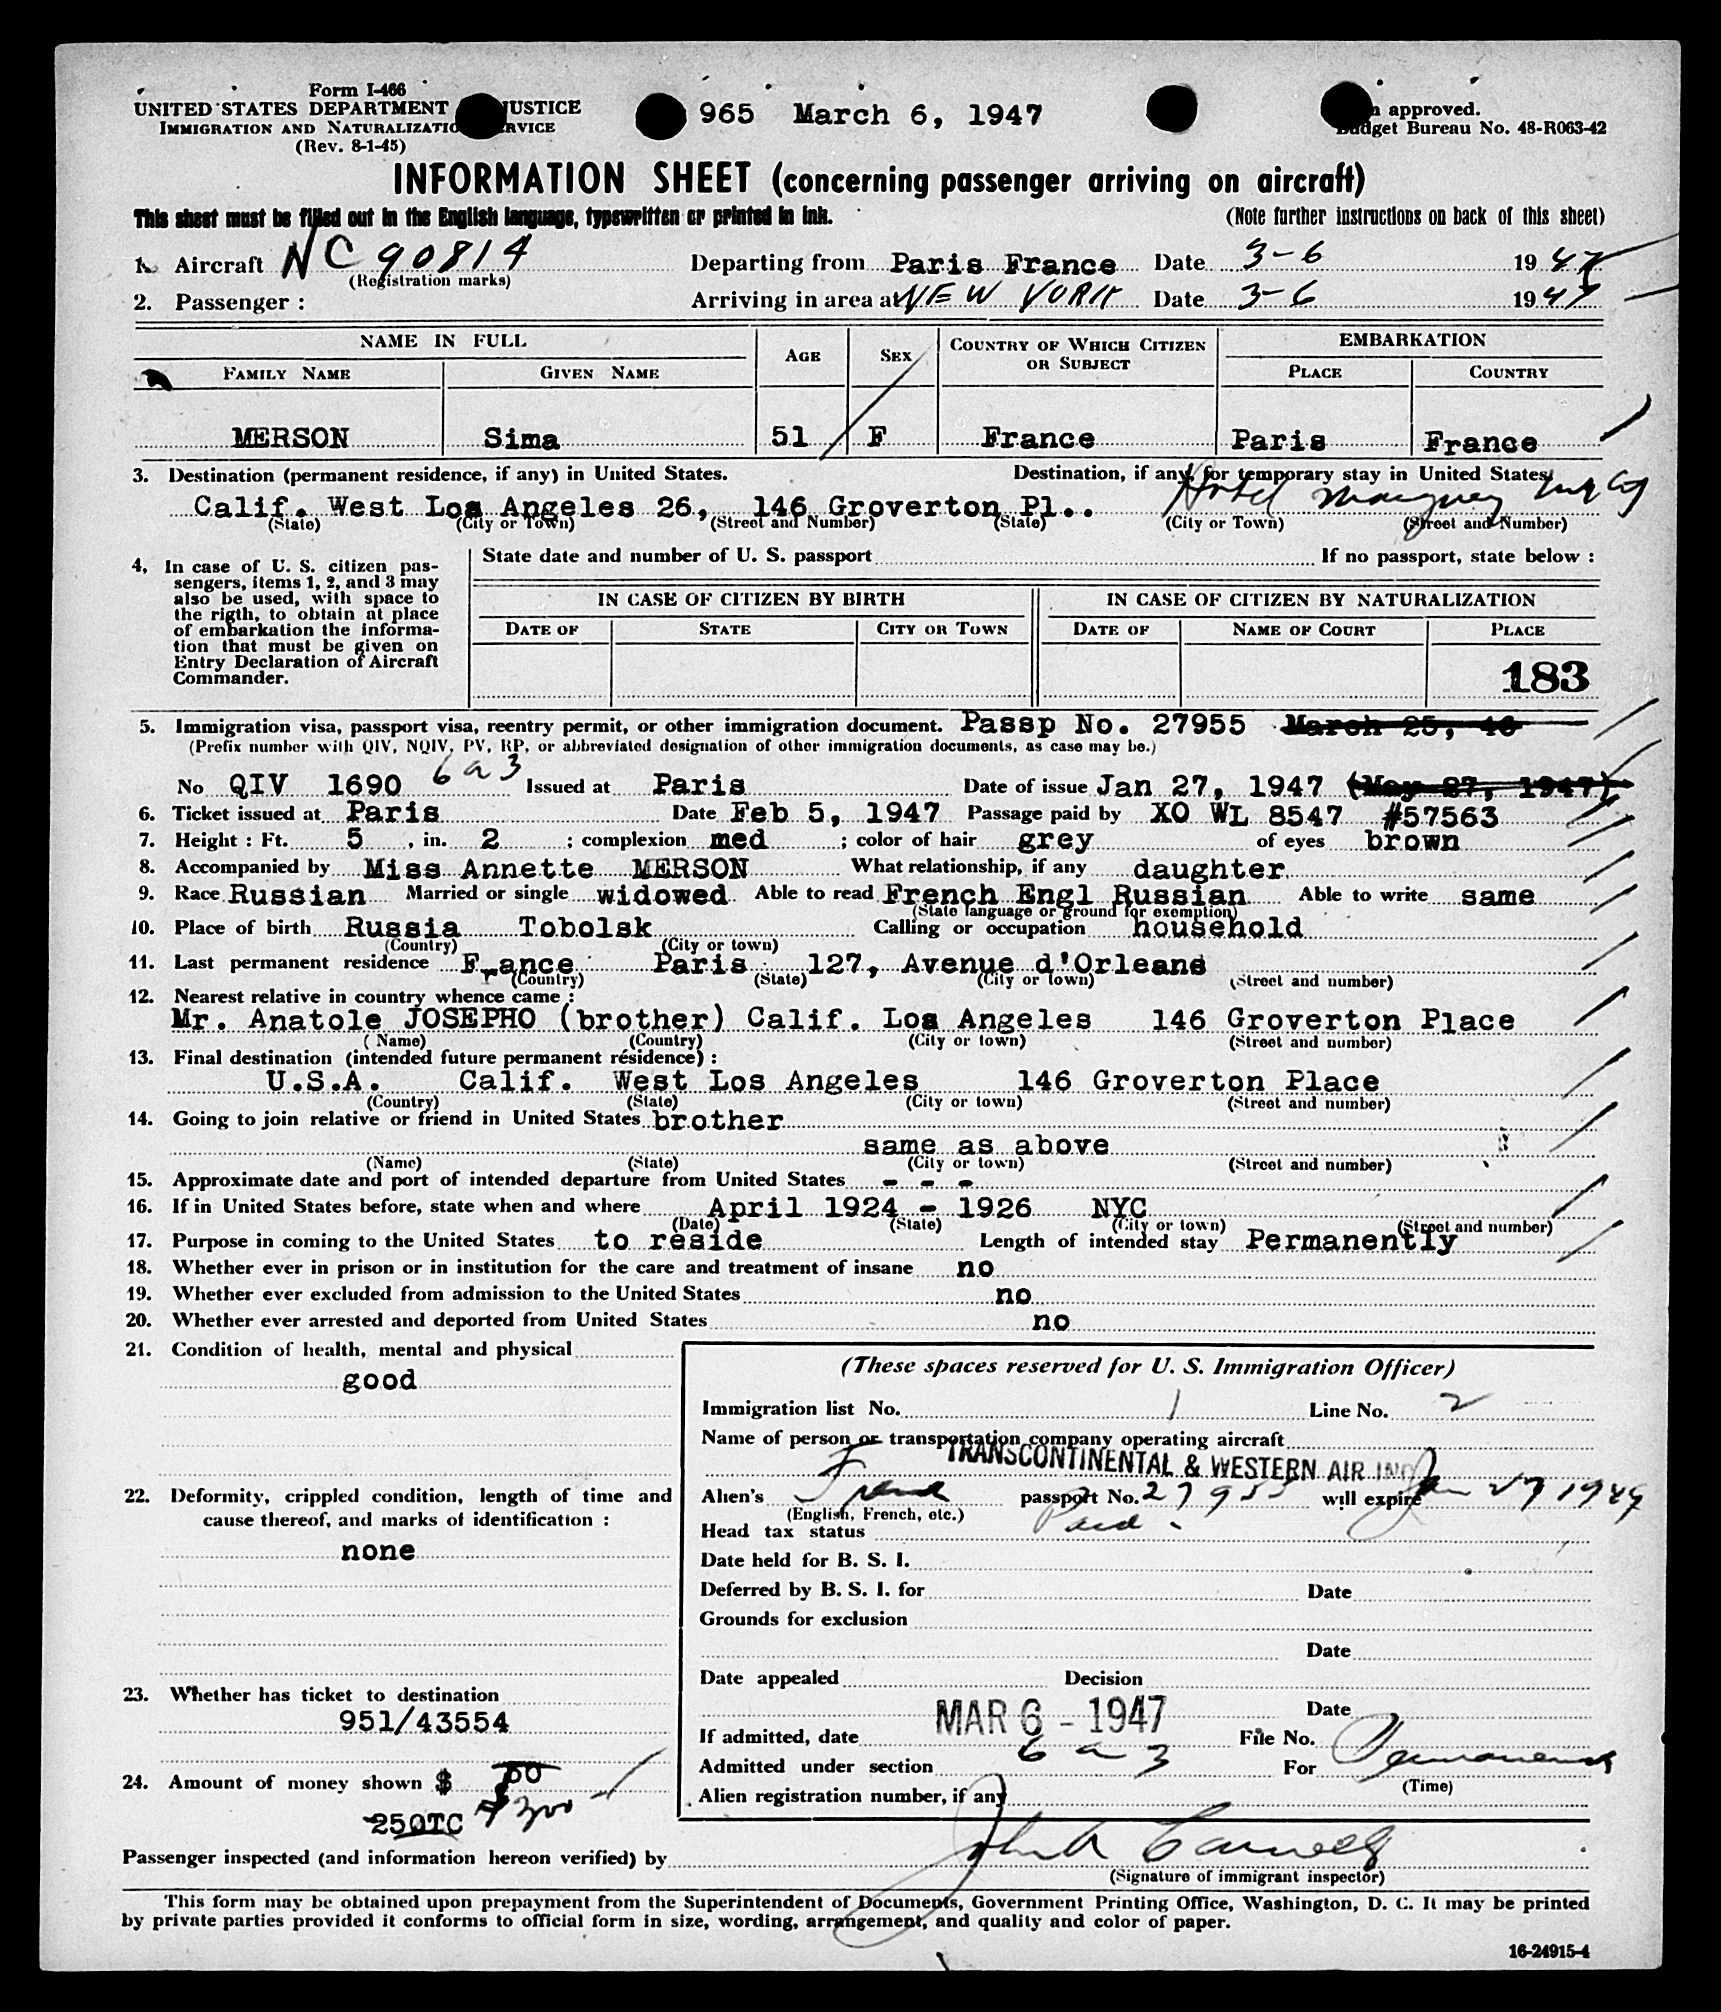 Form I-466
UNITED STATES DEPARTMENT JUSTICE
IMMIGRATION AND NATURALIZATION SERVICE
(Rev. 8-1-45)
965 March 6, 1947
approved.
Budget Bureau No. 48-R063-42
INFORMATION SHEET (concerning passenger arriving on aircraft)
This sheet must be filled out in the English language, typewritten or printed in ink. (Note further instructions on back of this sheet)
1. Aircraft NC 90814 Departing from Paris France Date 3-6 1947
(Registration marks)
2. Passenger : Arriving in area at NEW YORK Date 3-6 1947
NAME IN FULL AGE SEX COUNTRY OF WHICH CITIZEN OR SUBJECT EMBARKATION
FAMILY NAME GIVEN NAME PLACE COUNTRY
MERSON Sima 51 F France Paris France
3. Destination (permanent residence, if any) in United States. Destination, if any, for temporary stay in United States,
Calif. West Los Angeles 26, 146 Groverton Pl.. Hotel
(State) (City or Town) (Street and Number) (State) (City or Town) (Street and Number)
4, In case of U. S. citizen pas-
sengers, items 1, 2, and 3 may
also be used, with space to
the rigth, to obtain at place
of embarkation the informa-
tion that must be given on
Entry Declaration of Aircraft
Commander.
State date and number of U. S. passport If no passport, state below :
IN CASE OF CITIZEN BY BIRTH IN CASE OF CITIZEN BY NATURALIZATION
DATE OF STATE CITY OR TOWN DATE OF NAME OF COURT PLACE
183
5. Immigration visa, passport visa, reentry permit, or other immigration document. Passp No. 27955 March 25, 46
(Prefix number with QIV, NQIV, PV, RP, or abbreviated designation of other immigration documents, as case may be.)
No QIV 1690 6 a 3 Issued at Paris Date of issue Jan 27, 1947 (May 27, 1947)
6. Ticket issued at Paris Date Feb 5, 1947 Passage paid by XO WL 8547 #57563
7. Height : Ft. 5 , in. 2 ; complexion med ; color of hair grey of eyes brown
8. Accompanied by Miss Annette MERSON What relationship, if any daughter
9. Race Russian Married or single widowed Able to read French Engl Russian Able to write same
(State language or ground for exemption)
10. Place of birth Russia Tobolsk Calling or occupation household
(Country) (City or town)
11. Last permanent residence France Paris 127, Avenue d'Orleans
(Country) (State) (City or town) (Street and number)
12. Nearest relative in country whence came :
Mr. Anatole JOSEPHO (brother) Calif. Los Angeles 146 Groverton Place
(Name) (Country) (City or town) (Street and number)
13. Final destination (intended future permanent résidence) :
U.S.A. Calif. West Los Angeles 146 Groverton Place
(Country) (State) (City or town) (Street and number)
14. Going to join relative or friend in United States brother
same as above
(Name) (State) (City or town) (Street and number)
15. Approximate date and port of intended departure from United States - - -
16. If in United States before, state when and where April 1924 - 1926 NYC
(Date) (State) (City or town) (Street and number)
17. Purpose in coming to the United States to reside Length of intended stay Permanently
18. Whether ever in prison or in institution for the care and treatment of insane no
19. Whether ever excluded from admission to the United States no
20. Whether ever arrested and deported from United States no
21. Condition of health, mental and physical
good
22. Deformity, crippled condition, length of time and
cause thereof, and marks of identification :
none
23. Whether has ticket to destination
951/43554
24. Amount of money shown $ 50
250TC $300
(These spaces reserved for U. S. Immigration Officer)
Immigration list No. 1 Line No. 2
Name of person or transportation company operating aircraft
TRANSCONTINENTAL & WESTERN AIR INC
Alien's French passport No. 27955 will expire Jan 27 1949
(English, French, etc.)
Head tax status Paid -
Date held for B. S. I.
Deferred by B. S. I. for Date
Grounds for exclusion
Date
Date appealed Decision
Date
If admitted, date MAR 6 - 1947 File No.
Admitted under section 6 a 3 For Permanent
(Time)
Alien registration number, if any
Passenger inspected (and information hereon verified) by John
(Signature of immigrant inspector)
This form may be obtained upon prepayment from the Superintendent of Documents, Government Printing Office, Washington, D. C. It may be printed
by private parties provided it conforms to official form in size, wording, arrangement, and quality and color of paper.
16-24915-4